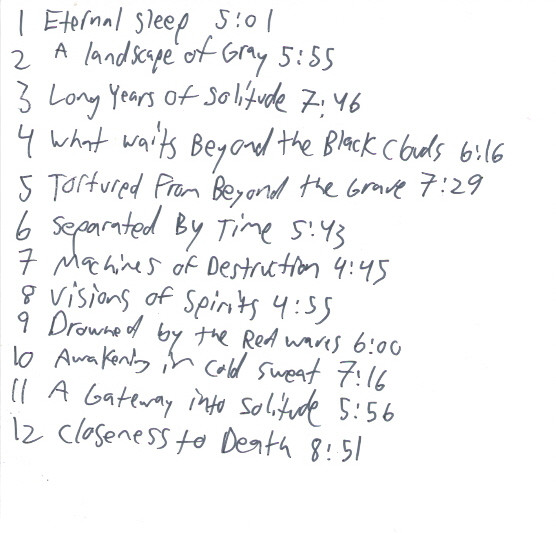 1 Eternal Sleep 5:01
2 A landscape of Gray 5:55
3 Long Years of Solitude 7:46
4 What waits Beyond the Black Clouds 6:16
5 Tortured From Beyond the Grave 7:29
6 Separated By Time 5:43
7 Machines of Destruction 4:45
8 Visions of Spirits 4:55
9 Drowned by the Red waves 6:00
10 Awakening in Cold Sweat 7:16
11 A Gateway into Solitude 5:56
12 Closeness to Death 8:51